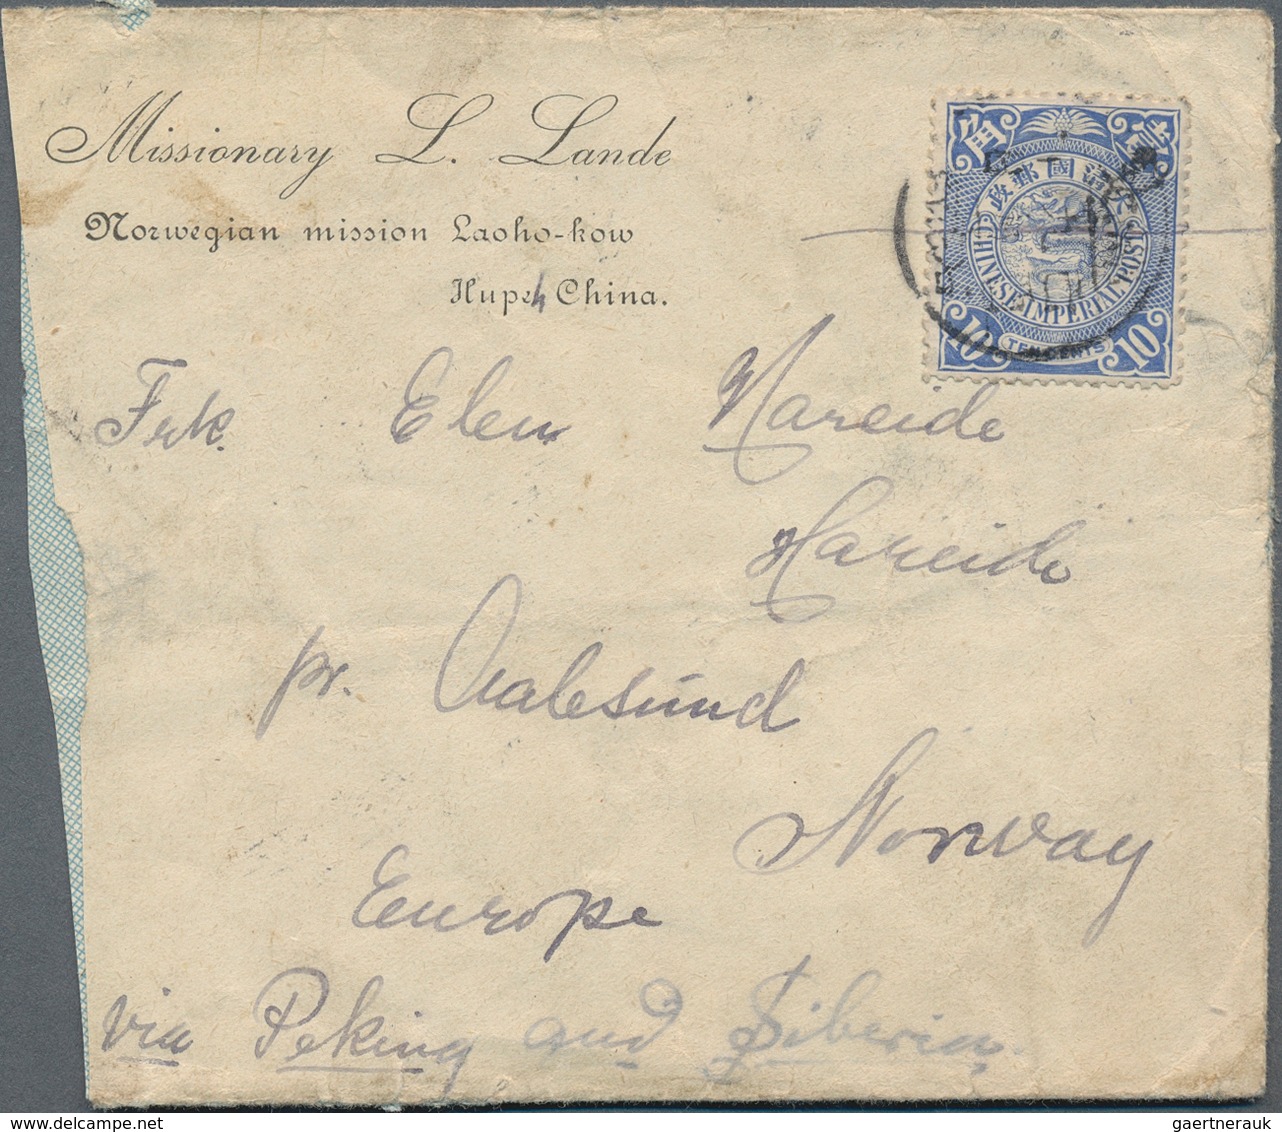 Missionary L. Lande
Norwegian mission Laoho-kow
Hupeh China.
大清國郵政
CHINESE IMPERIAL POST
10 TEN CENTS 10
Frk. Elen Hareide
Hareide
pr. Aalesund
Norway
Europe
via Peking and Siberia.
gaertnerauk